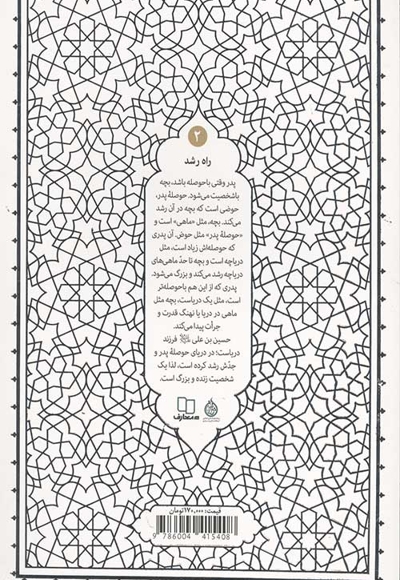 ۲
راه رشد
پدر وقتی باحوصله باشد، بچه
باشخصیت می‌شود. حوصلهٔ پدر،
حوضی است که بچه در آن رشد
می‌کند. بچه، مثل «ماهی» است و
«حوصلهٔ پدر» مثل حوض. آن پدری
که حوصله‌اش زیاد است، مثل
دریاچه است و بچه تا حدّ ماهی‌های
دریاچه رشد می‌کند و بزرگ می‌شود.
پدری که از این هم باحوصله‌تر
است، مثل یک دریاست، بچه مثل
ماهی در دریا یا نهنگ قدرت و
جرأت پیدا می‌کند.
حسین بن علی فرزند
دریاست؛ در دریای حوصلهٔ پدر و
جدّش رشد کرده است، لذا یک
شخصیت زنده و بزرگ است.
معارف
قیمت: ۱۷۰,۰۰۰ تومان
9 786004 415408